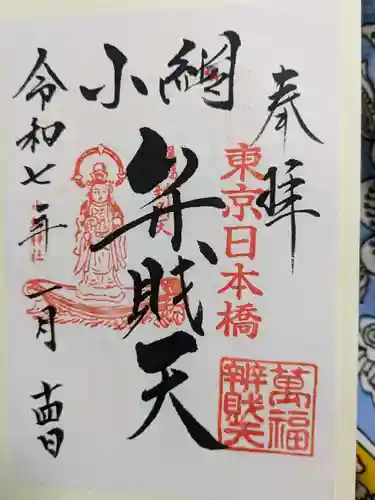 奉拝
東京日本橋
小網
弁財天
萬福
辨財天
令和七年
一月
十四日